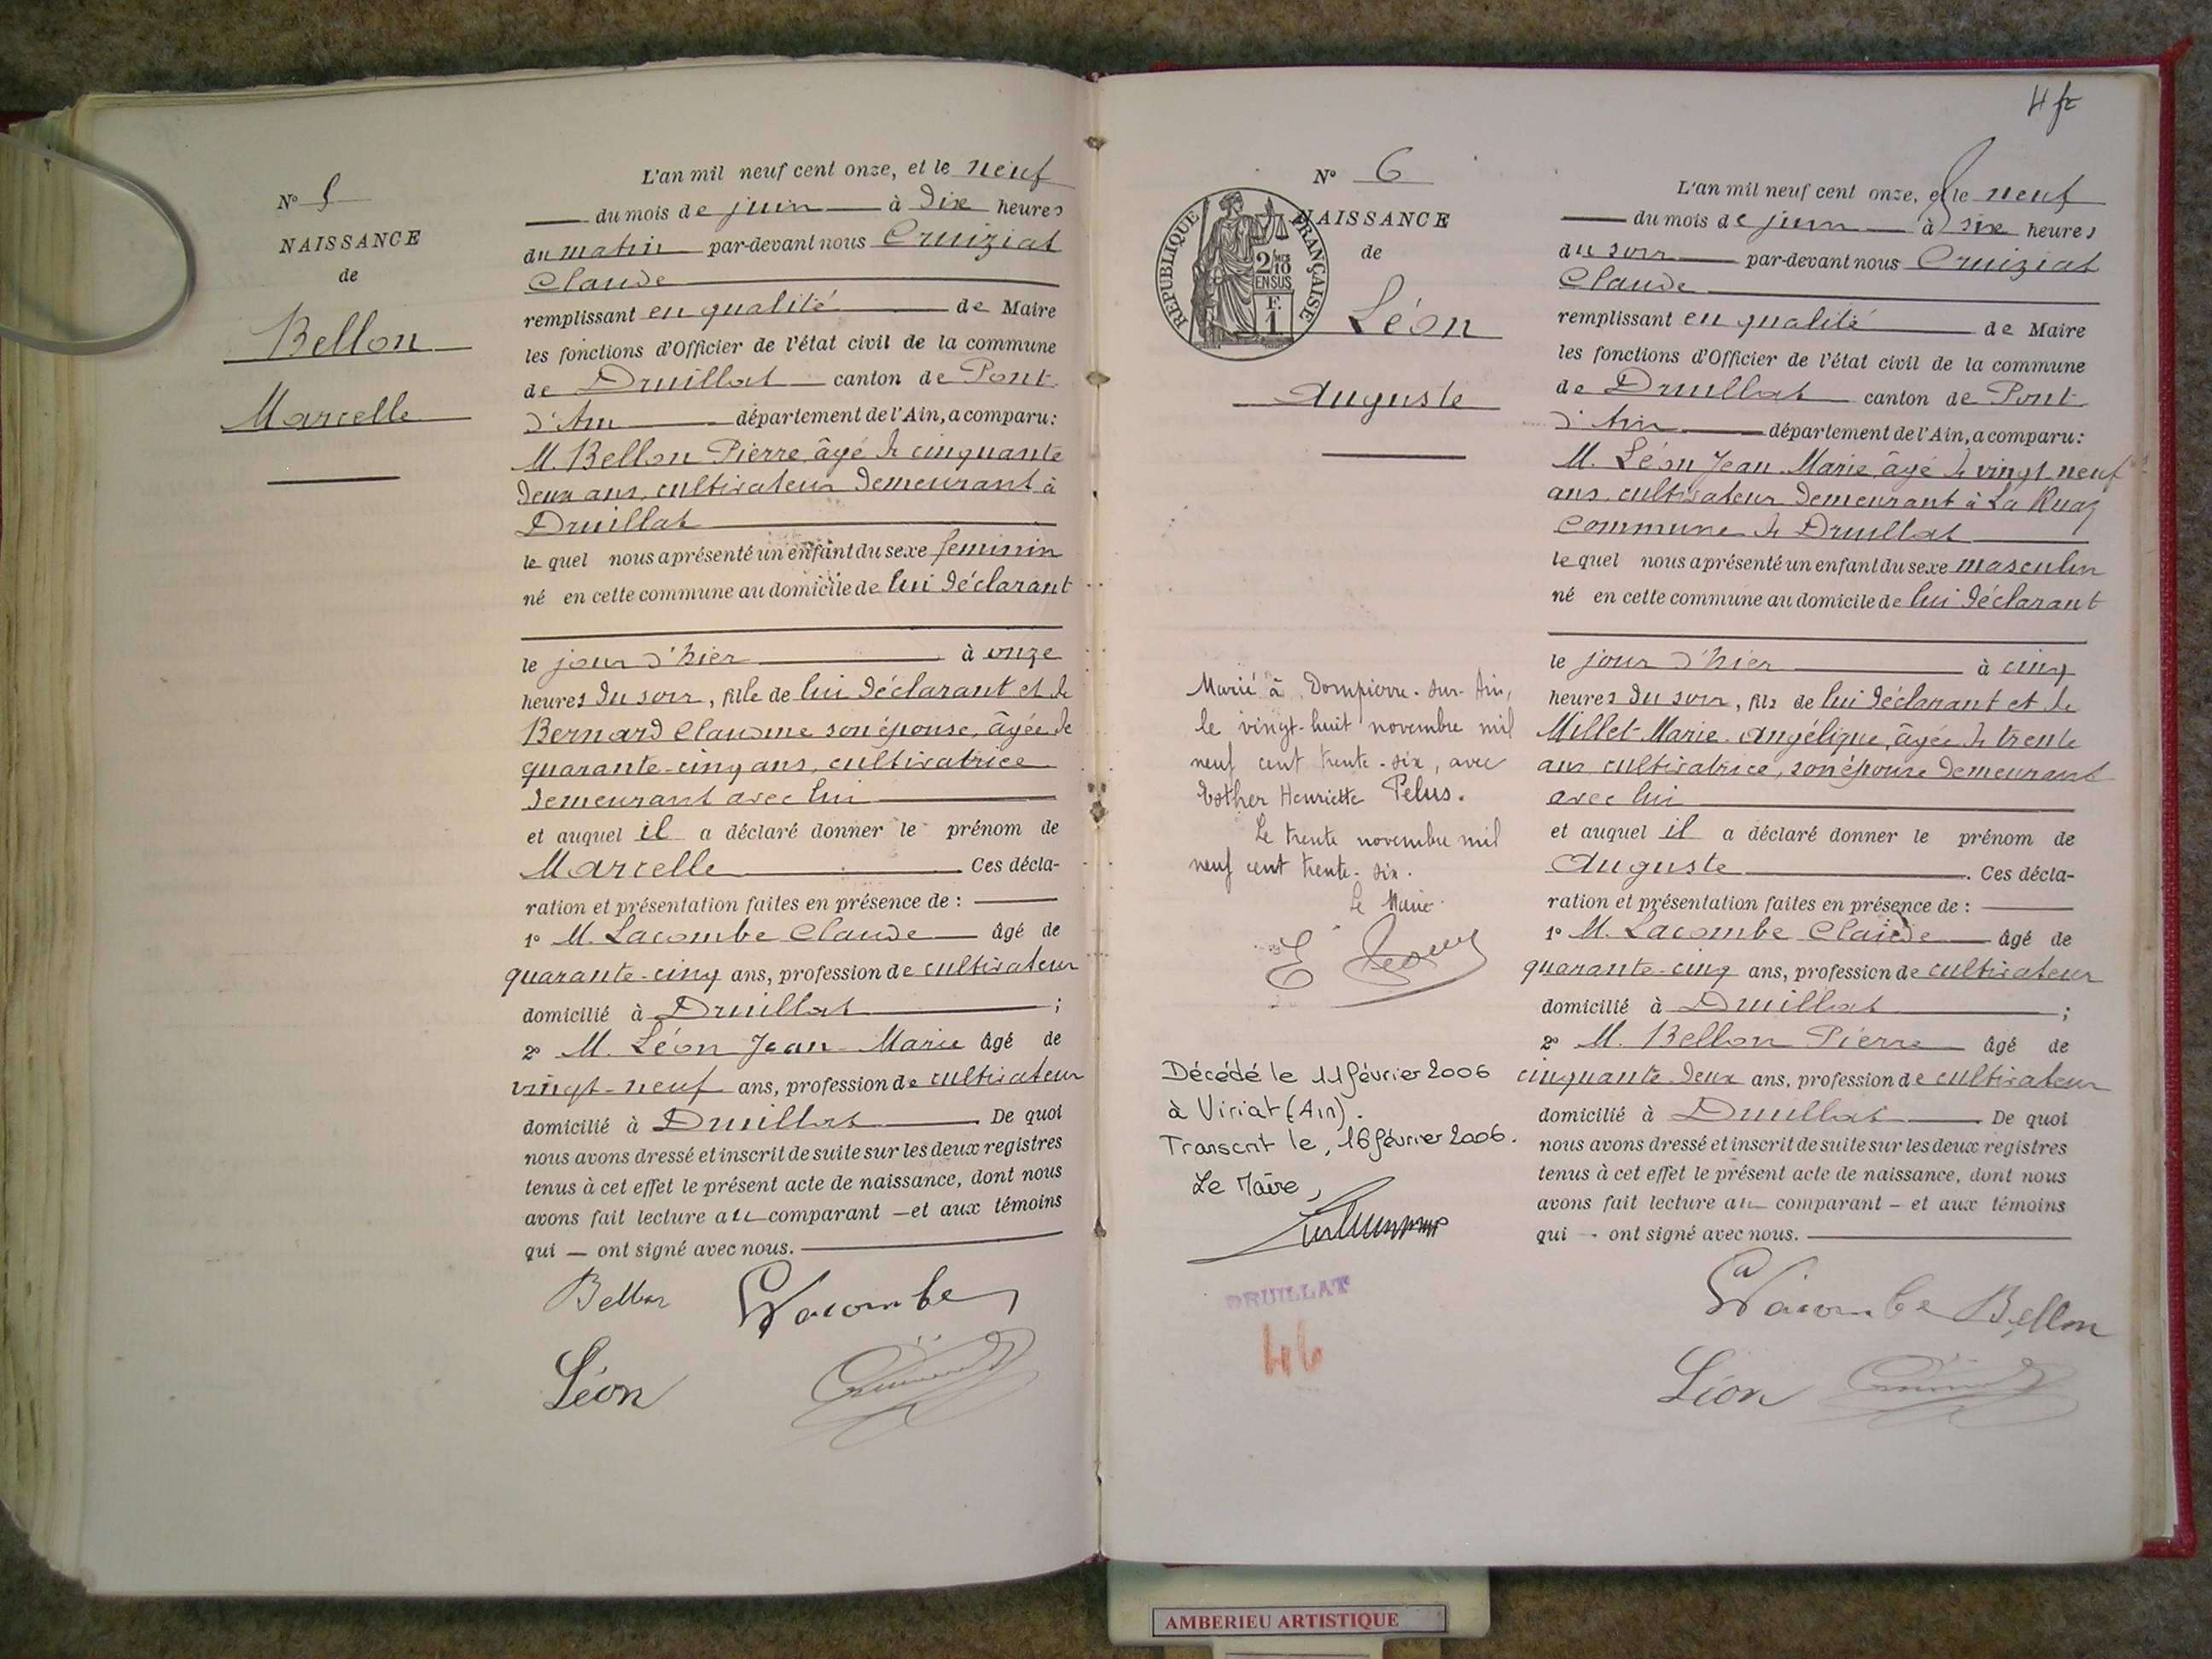 N° 5
NAISSANCE
de
Bellon
Marcelle
L'an mil neuf cent onze, et le neuf
du mois de juin à dix heures
du matin par-devant nous Cruiziat
Claude
remplissant en qualité de Maire
les fonctions d'Officier de l'état civil de la commune
de Druillat canton de Pont
d'Ain département de l'Ain, a comparu:
M. Bellon Pierre, âgé de cinquante
deux ans, cultivateur demeurant à
Druillat
le quel nous a présenté un enfant du sexe feminin
né en cette commune au domicile de lui déclarant
le jour d'hier à onze
heures du soir, fille de lui déclarant et de
Bernard Claudine son épouse, âgée de
quarante-cinq ans, cultivatrice
demeurant avec lui
et auquel il a déclaré donner le prénom de
Marcelle Ces décla-
ration et présentation faites en présence de :
1° M. Lacombe Claude âgé de
quarante-cinq ans, profession de cultivateur
domicilié à Druillat ;
2° M. Léon Jean-Marie âgé de
vingt-neuf ans, profession de cultivateur
domicilié à Druillat De quoi
nous avons dressé et inscrit de suite sur les deux registres
tenus à cet effet le présent acte de naissance, dont nous
avons fait lecture au comparant — et aux témoins
qui — ont signé avec nous.
Bellon Lacombe
Léon
4 fc
N° 6
REPUBLIQUE FRANÇAISE
2/10 EN SUS
F. 1
NAISSANCE
de
Léon
Auguste
Marié à Dompierre-sur-Ain,
le vingt-huit novembre mil
neuf cent trente-six, avec
Esther Henriette Pelus.
Le trente novembre mil
neuf cent trente-six.
Le Maire
Décédé le 11 février 2006
à Viriat (Ain).
Transcrit le, 16 février 2006.
Le Maire,
DRUILLAT
46
L'an mil neuf cent onze, et le neuf
du mois de juin à six heures
du soir par-devant nous Cruiziat
Claude
remplissant en qualité de Maire
les fonctions d'Officier de l'état civil de la commune
de Druillat canton de Pont
d'Ain département de l'Ain, a comparu:
M. Léon Jean-Marie, âgé de vingt-neuf
ans, cultivateur demeurant à La Ruaz
commune de Druillat
le quel nous a présenté un enfant du sexe masculin
né en cette commune au domicile de lui déclarant
le jour d'hier à cinq
heures du soir, fils de lui déclarant et de
Millet Marie-Angélique, âgée de trente
ans cultivatrice, son épouse demeurant
avec lui
et auquel il a déclaré donner le prénom de
Auguste. Ces décla-
ration et présentation faites en présence de :
1° M. Lacombe Claude âgé de
quarante-cinq ans, profession de cultivateur
domicilié à Druillat ;
2° M. Bellon Pierre âgé de
cinquante-deux ans, profession de cultivateur
domicilié à Druillat De quoi
nous avons dressé et inscrit de suite sur les deux registres
tenus à cet effet le présent acte de naissance, dont nous
avons fait lecture au comparant — et aux témoins
qui — ont signé avec nous.
Lacombe Bellon
Léon
AMBERIEU ARTISTIQUE